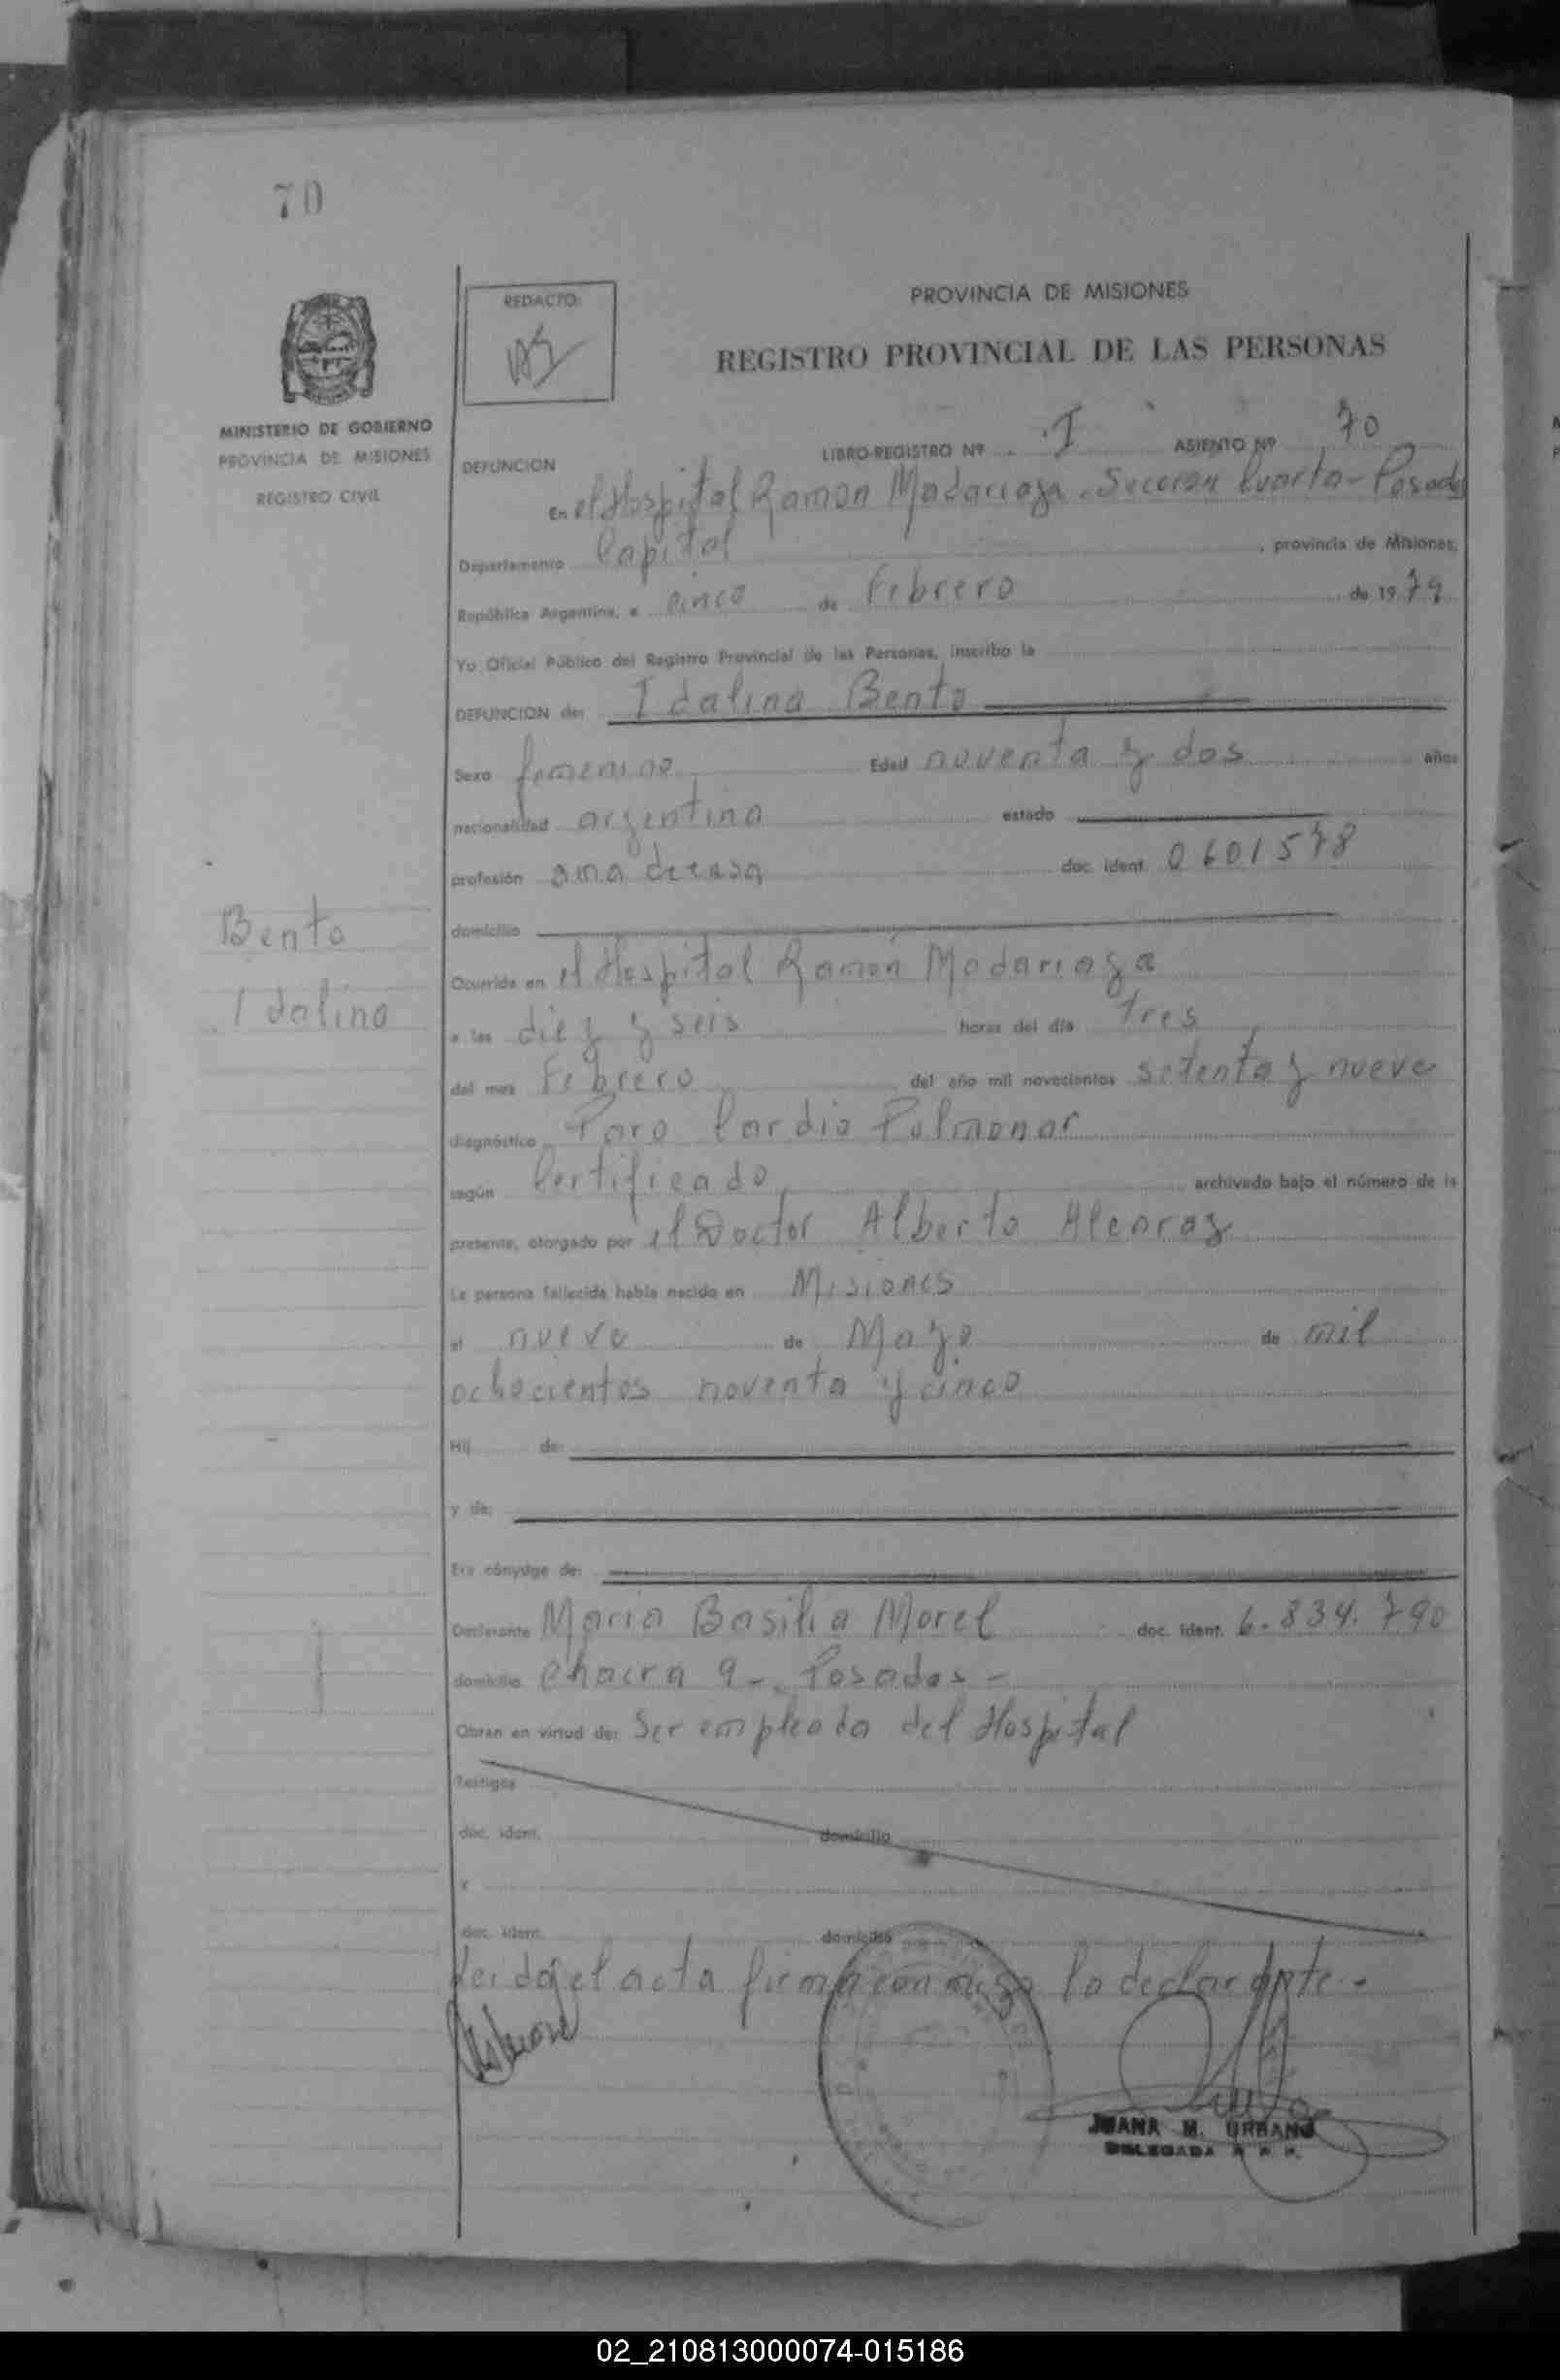 70
MINISTERIO DE GOBIERNO
PROVINCIA DE MISIONES
REGISTRO CIVIL
REDACTO:
PROVINCIA DE MISIONES
REGISTRO PROVINCIAL DE LAS PERSONAS
LIBRO-REGISTRO Nº I ASIENTO Nº 70
DEFUNCION
En el Hospital Ramon Madariaga. Seccion Cuarta - Posadas
Departamento Capital, provincia de Misiones,
República Argentina, a cinco de Febrero de 1979
Yo Oficial Público del Registro Provincial de las Personas, inscribo la
DEFUNCION de: Idalina Bento
Sexo femenino Edad noventa y dos años
nacionalidad argentina estado
profesión ama de casa doc. ident. 0601578
domicilio
Bento
Idalina
Ocurrida en el Hospital Ramón Madariaga
a las diez y seis horas del día tres
del mes Febrero del año mil novecientos setenta y nueve
diagnóstico Paro Cardio Pulmonar
según Certificado archivado bajo el número de la
presente, otorgado por el Doctor Alberto Alcaraz
La persona fallecida había nacido en Misiones
el nueve de Mayo de mil
ochocientos noventa y cinco
Hij de:
y de:
Era cónyuge de:
Declarante Maria Basilia Morel doc. ident. 6.834.790
domicilio Chacra 9 - Posadas -
Obran en virtud de: Ser empleada del Hospital
Testigos
doc. ident. domicilio
y
doc. ident. domicilio
Leida el acta firma conmigo la declarante.-
JUANA M. URBANO
DELEGADA R. P. P.
02_210813000074-015186